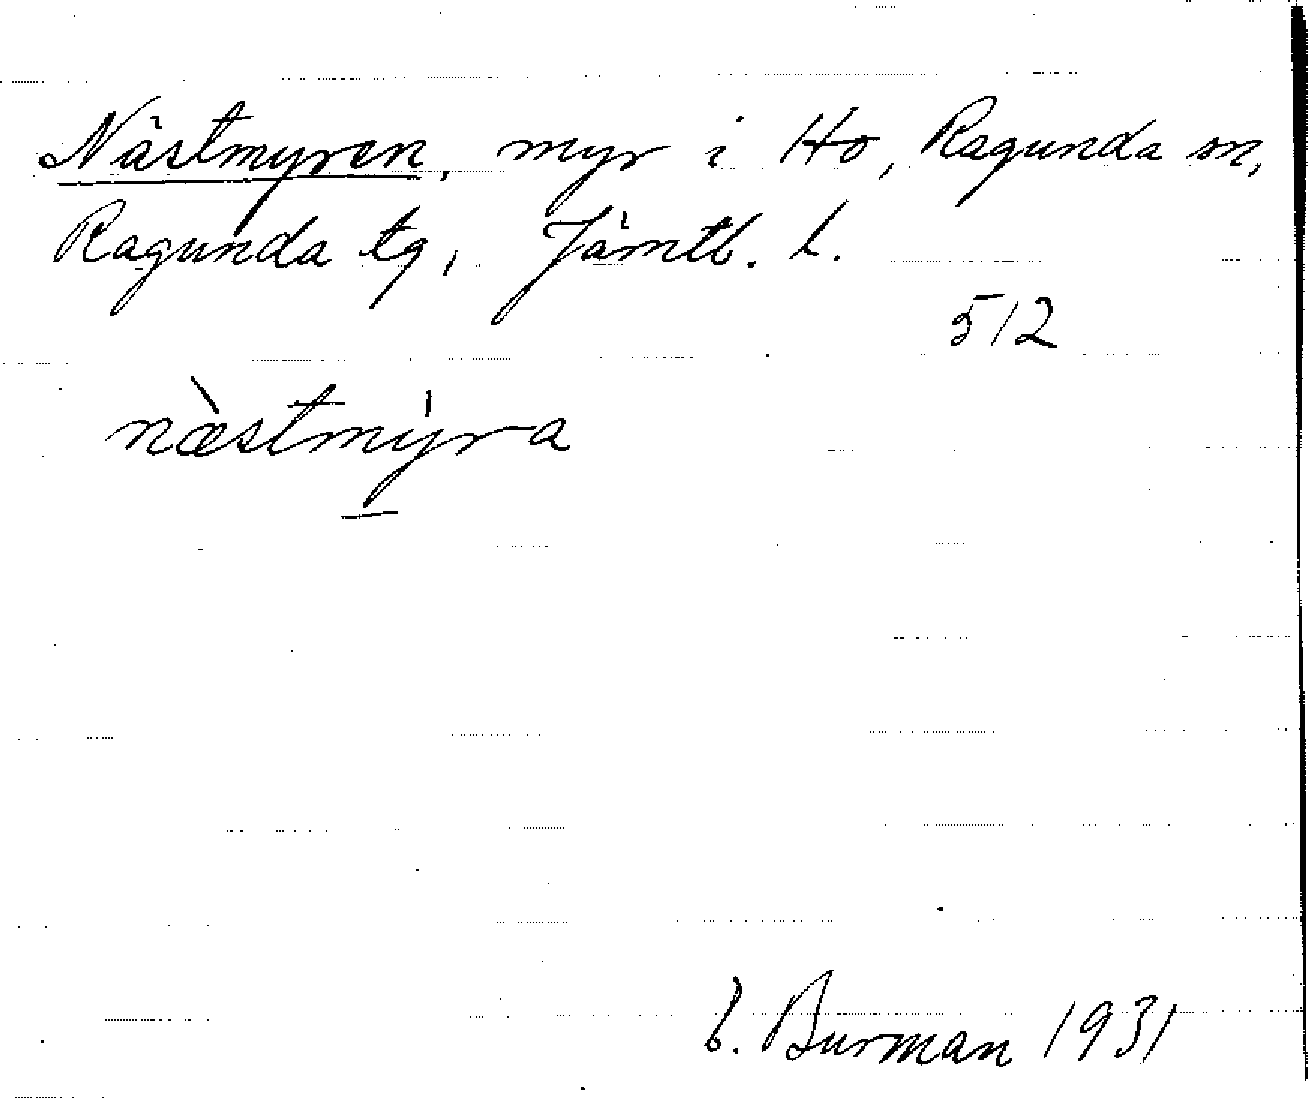 Nästmyren, myr i Ho, Ragunda sn,
Ragunda tg, Jämtl. l.
512
næ̀stmýra
Burman 1931